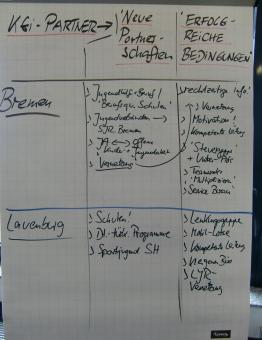 KGi-PARTNER →
'Neue
Partner-
schaften
'ERFOLG-
REICHE
BEDINGUNGEN'
Bremen
Jugendhilfe
Schulen'
Jugendverbänden →
SJR Bremen
JA ↔ offene
Kinder-
Vernetzung
rechtzeitige Info!
Vernetzung
Motivation!
Kompetente Leitung
'Steuergruppe
Teamwork-
'Multiplikation'
Service Büro
Lauenburg
Schulen!
Dt.-türk. Programme
Sportjugend SH
Lenkungsgruppe
Mobil-Lotse
Kompetente Leitung
Vernetzung